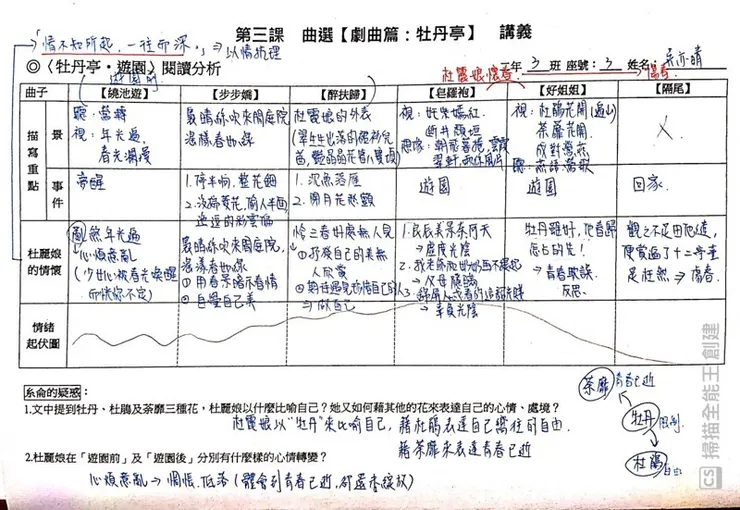 第三課 曲選【劇曲篇：牡丹亭】 講義
「情不知所起，一往而深」⇒以情抗理
◎〈牡丹亭·遊園〉閱讀分析
遊園前
杜麗娘懷春
傷春
三年 3 班 座號：3 姓名：
曲子 【繞池遊】 【步步嬌】 【醉扶歸】 【皂羅袍】 【好姐姐】 【隔尾】
描寫重點
景
聽：鶯囀
視：年光遍，
春光爛漫
裊晴絲吹來閒庭院
搖漾春如線
杜麗娘的外表
(翠生生出落的裙衫兒
茜，艷晶晶花簪八寶填)
視：奼紫嫣紅，
斷井頹垣
想像：朝飛暮捲，雲霞
翠軒，雨絲風片
視：杜鵑花開(遍山)
荼靡花開
成對鶯燕
聽：燕語鶯歌
X
事件
夢醒
1.停半晌，整花鈿
2.沒揣菱花，偷人半面
迤逗的彩雲偏
1.沉魚落雁
2.閉月羞花
遊園
遊園
回家
杜麗娘的情懷
亂煞年光遍
心煩意亂
裊晴絲吹來閒庭院，
搖漾春如線
①用春景暗示春情
②自覺自己美
恰三春好處無人見
①抒發自己的美無
人欣賞
1.良辰美景奈何天
→虛度光陰
→辜負光陰
牡丹雖好，他春歸
怎占的先！
⇒青春耽誤，
反思
觀之不足由他遣，
便賞遍了十二亭臺
是枉然⇒傷春
情緒起伏圖
系侖的疑惑：
1.文中提到牡丹、杜鵑及荼靡三種花，杜麗娘以什麼比喻自己？她又如何藉其他的花來表達自己的心情、處境？
杜麗娘以"牡丹"來比喻自己，藉杜鵑表達自己嚮往的自由，
藉荼靡來表達青春已逝
荼靡 青春已逝
牡丹 限制
杜鵑 自由
2.杜麗娘在「遊園前」及「遊園後」分別有什麼樣的心情轉變？
心煩意亂→惆悵、低落(體會到青春已逝，
CS 掃描全能王 創建